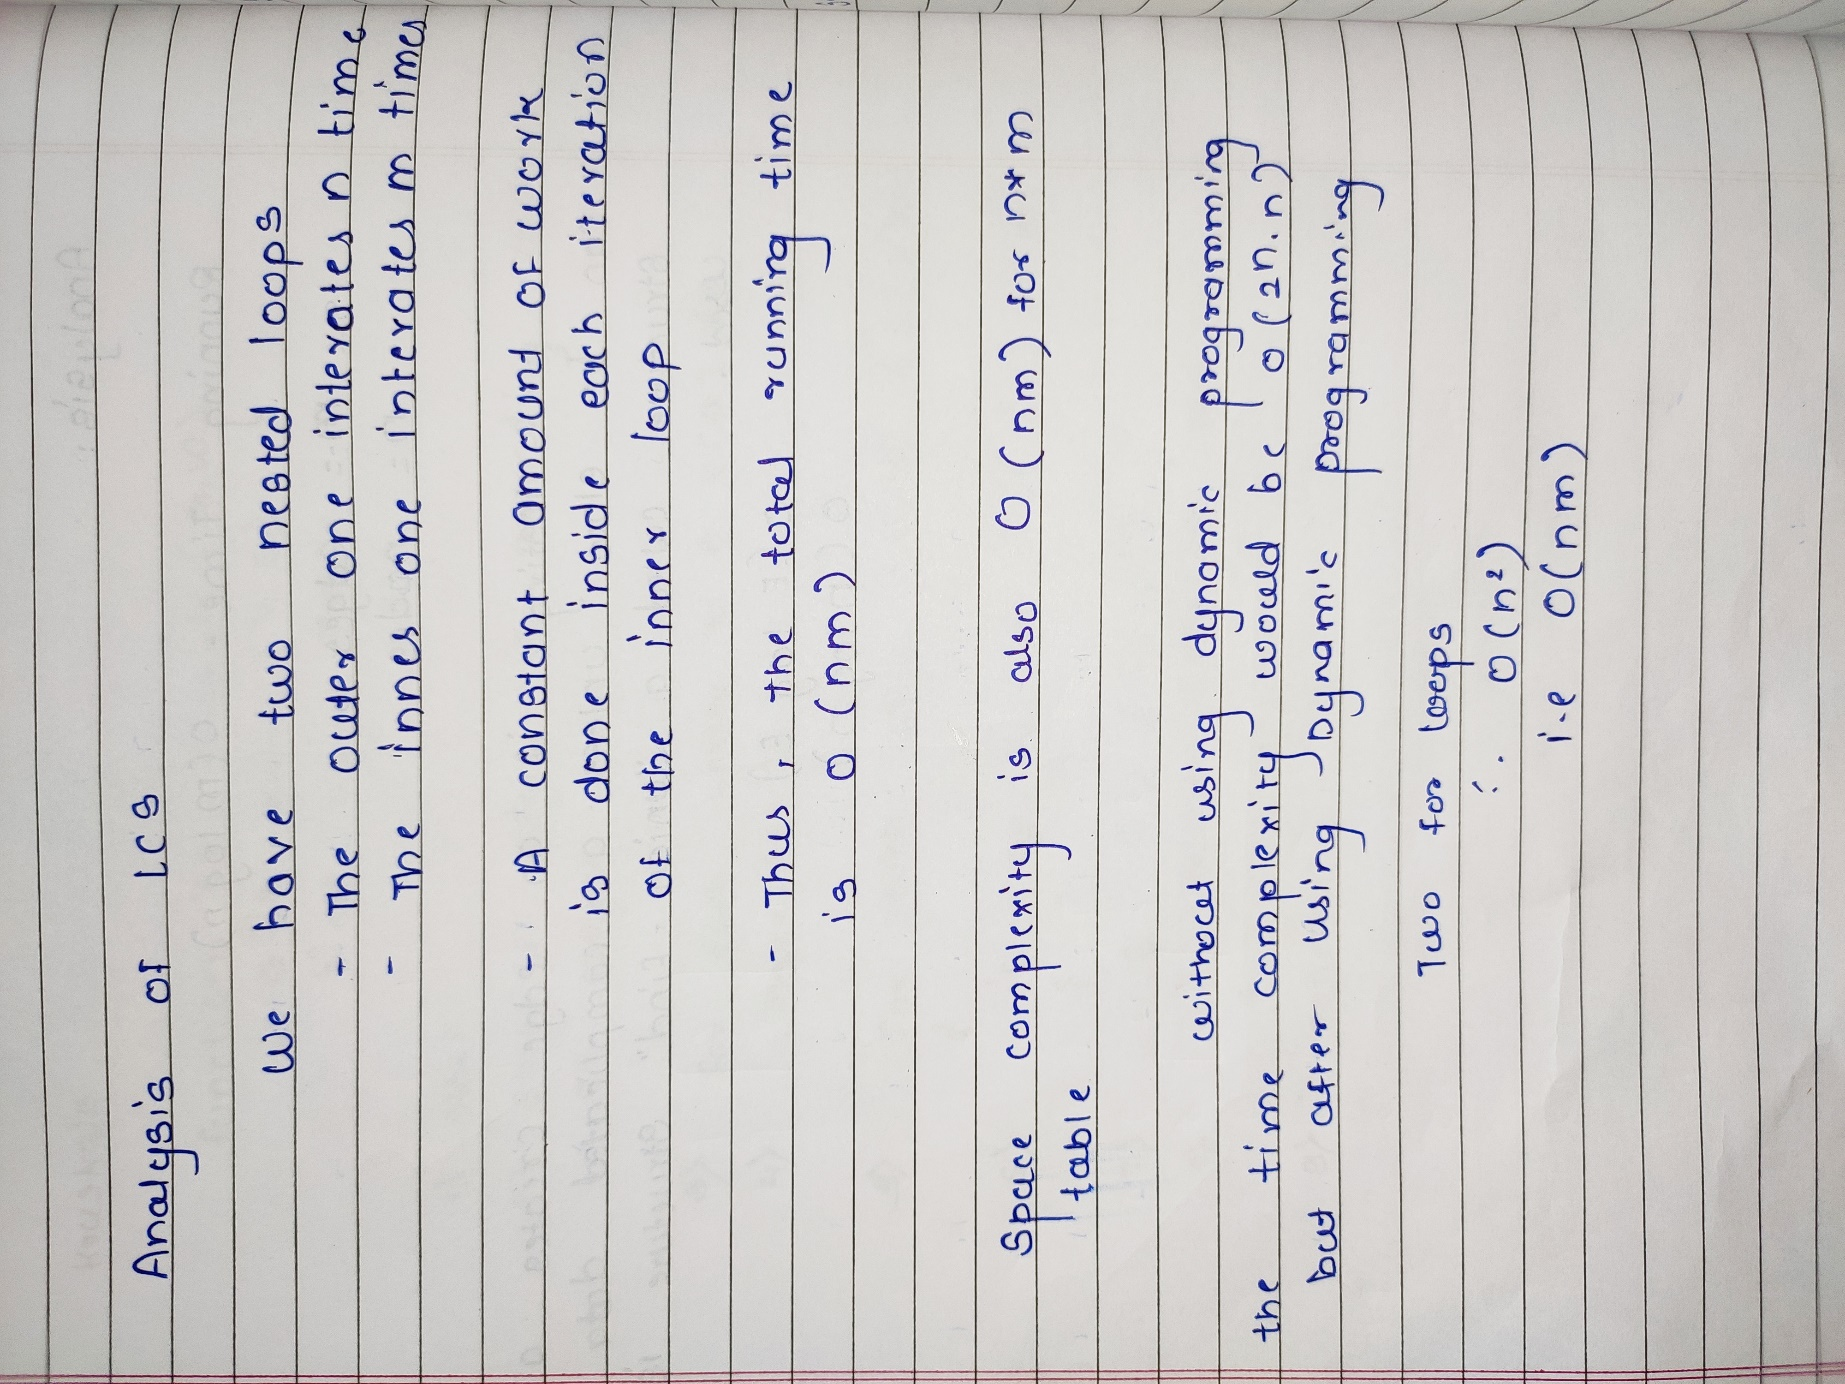 Analysis of LCS
We have two nested loops
- The outer one interates n time
- The innes one interates m times
- A constant amount of work
is done inside each iteration
of the inner loop
- Thus, the total running time
is O (nm)
Space complexity is also O (nm) for n*m
table
without using dynamic programming
the time complexity would be O (2n.n)
but after using Dynamic programming
Two for loops
∴ O (n²)
i.e O(nm)